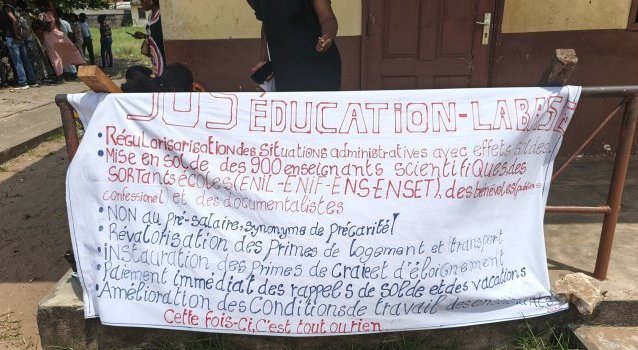 SOS EDUCATION-LABASE
• Régularisarisation des situations administratives avec effets soldes
• Mise en solde des 900 enseignants scientifiques, des
SORTANTS écoles (ENIL-ENIF-ENS-ENSET), des bénévoles
confessionel et des documentalistes
• NON au pré-salaire, synonyme de précarité!
• Révalorisation des primes de logement et transport
• instauration des primes de craie et d'éloignement
• Paiement immédiat des rappels de solde et des vacations
• Amélioration des Conditions de travail des enseignants
Cette fois-Ci, C'est tout ou rien